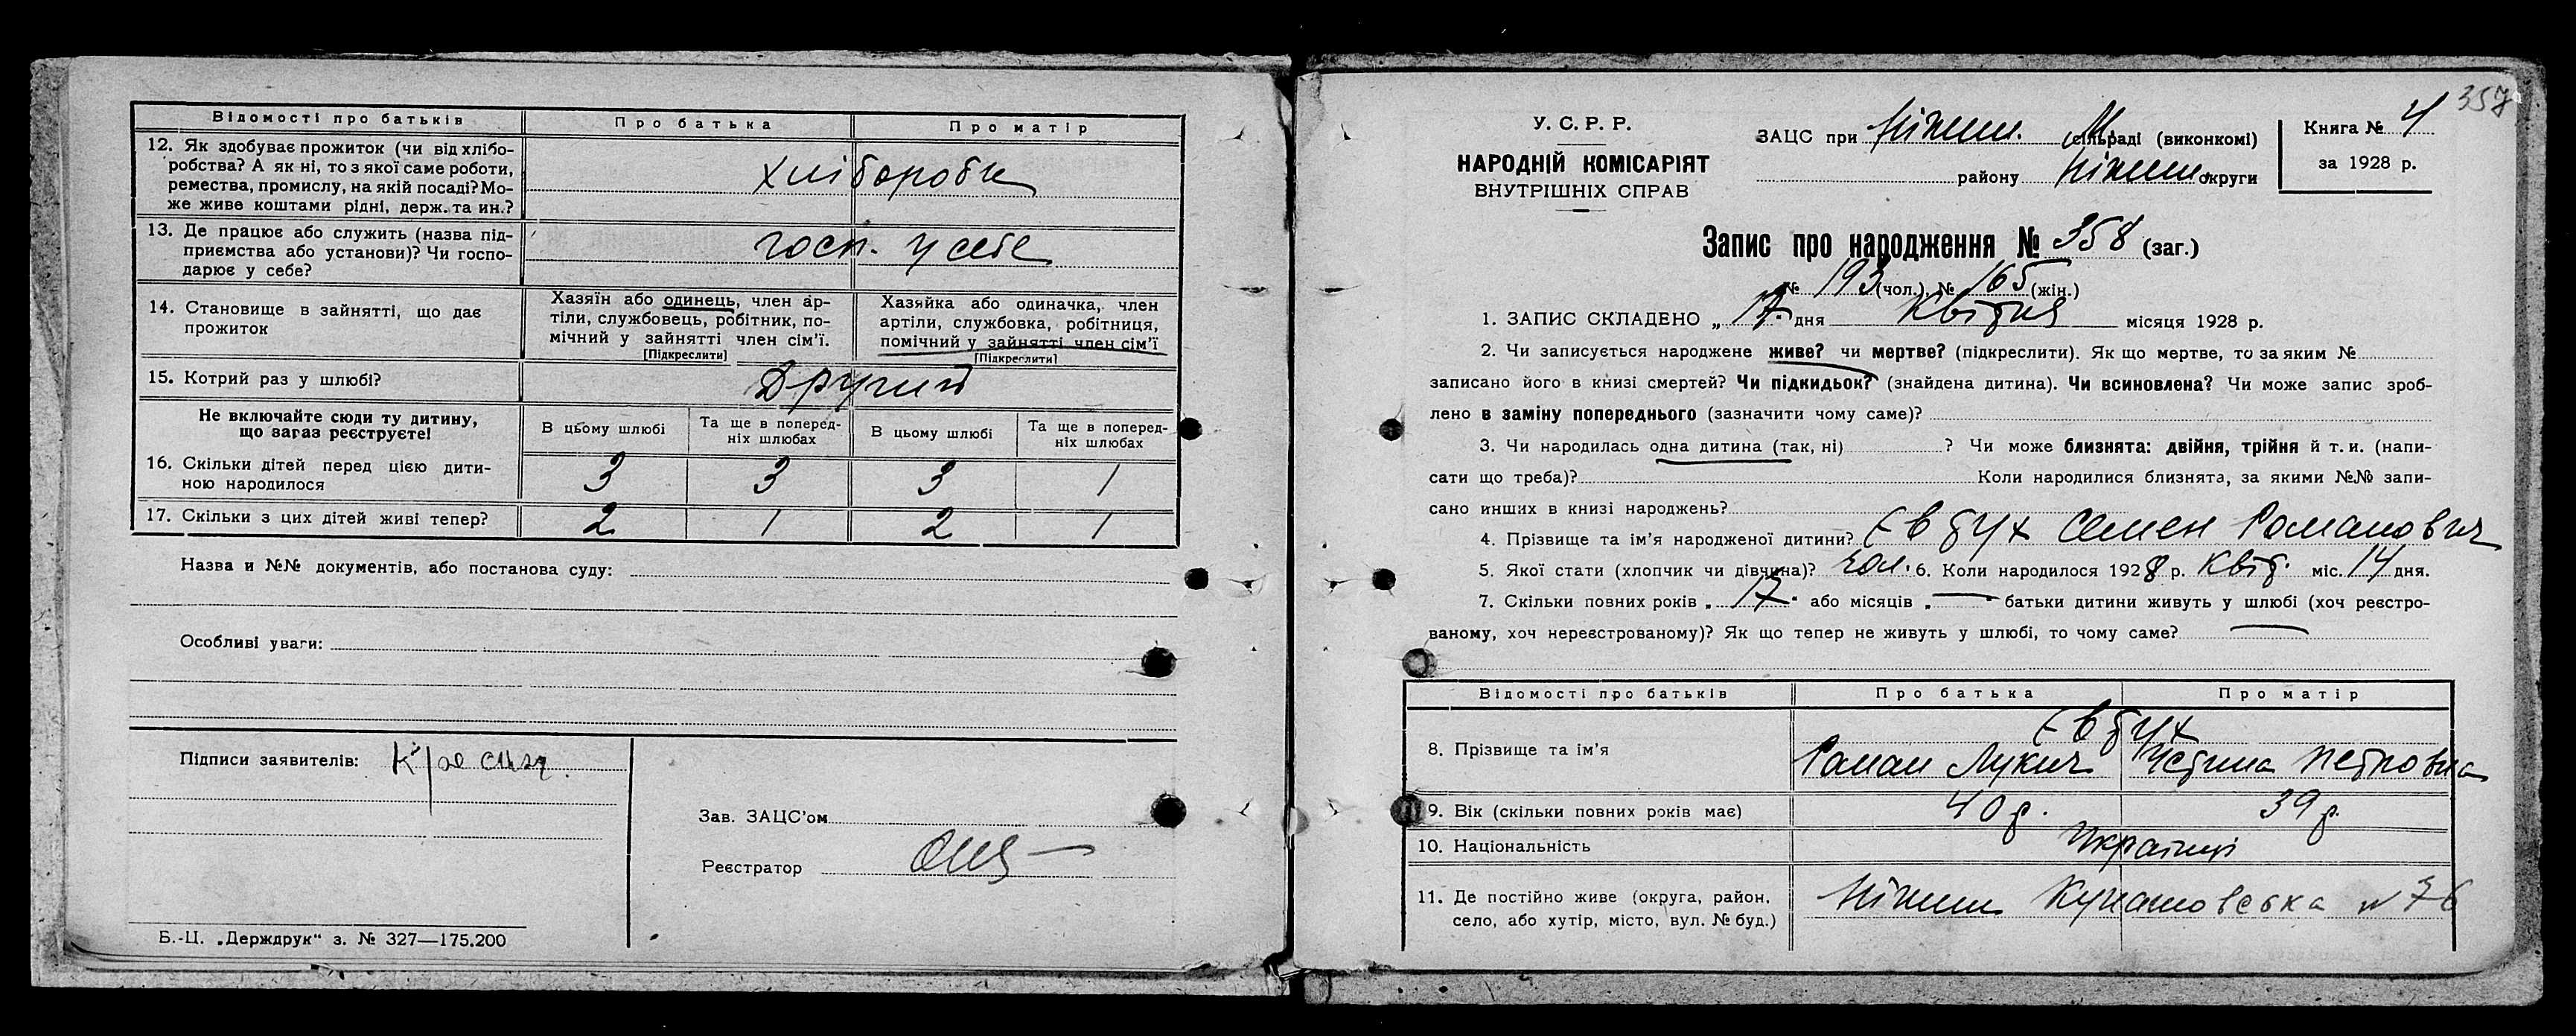 Відомості про батьків Про батька Про матір
12. Як здобуває прожиток (чи від хлібо-
робства? А як ні, то з якої саме роботи,
ремества, промислу, на якій посаді? Мо-
же живе коштами рідні, держ. та ин.?
хлібороби
13. Де працює або служить (назва під-
приємства або установи)? Чи госпо-
дарює у себе?
госп. у себе
14. Становище в зайнятті, що дає
прожиток
Хазяїн або одинець, член ар-
тіли, службовець, робітник, по-
мічний у зайнятті член сім'ї.
[Підкреслити]
Хазяйка або одиначка, член
артіли, службовка, робітниця,
помічний у зайнятті член сім'ї
[Підкреслити]
15. Котрий раз у шлюбі? Другий
Не включайте сюди ту дитину,
що зараз реєструєте!
В цьому шлюбі
Та ще в поперед-
ніх шлюбах
В цьому шлюбі
Та ще в поперед-
ніх шлюбах
16. Скільки дітей перед цією дити-
ною народилося
3 3 3 1
17. Скільки з цих дітей живі тепер? 2 1 2 1
Назва и №№ документів, або постанова суду:
Особливі уваги:
Підписи заявителів:
Зав. ЗАЦС'ом
Реєстратор
Б.-Ц. „Держдрук“ з. № 327—175.200
357
У. С. Р. Р.
НАРОДНІЙ КОМІСАРІЯТ
ВНУТРІШНІХ СПРАВ
ЗАЦС при Ніжин. М сільраді (виконкомі)
району Ніжин. округи
Книга № 4
за 1928 р.
Запис про народження № 358 (заг.)
№ 193 (чол.) № 165 (жін.)
1. ЗАПИС СКЛАДЕНО „ 17 дня Квітня місяця 1928 р.
2. Чи записується народжене живе? чи мертве? (підкреслити). Як що мертве, то за яким №
записано його в книзі смертей? Чи підкидьок? (знайдена дитина). Чи всиновлена? Чи може запис зроб-
лено в заміну попереднього (зазначити чому саме)?
3. Чи народилась одна дитина (так, ні) ? Чи може близнята: двійня, трійня й т. и. (напи-
сати що треба)? Коли народилися близнята, за якими №№ запи-
сано инших в книзі народжень?
4. Прізвище та ім'я народженої дитини? Євтух Семен Романович
5. Якої стати (хлопчик чи дівчина)? чол. 6. Коли народилося 1928 р. Квіт. міс. 14 дня.
7. Скільки повних років „ 17 “ або місяців „ — “ батьки дитини живуть у шлюбі (хоч реєстро-
ваному, хоч нереєстрованому)? Як що тепер не живуть у шлюбі, то чому саме? —
Відомості про батьків Про батька Про матір
Євтух
8. Прізвище та ім'я
Роман Лукич Устина Петровна
9. Вік (скільки повних років має) 40 р. 39 р.
10. Національність Українці
11. Де постійно живе (округа, район,
село, або хутір, місто, вул. № буд.)
Ніжин Кунашовська № 76